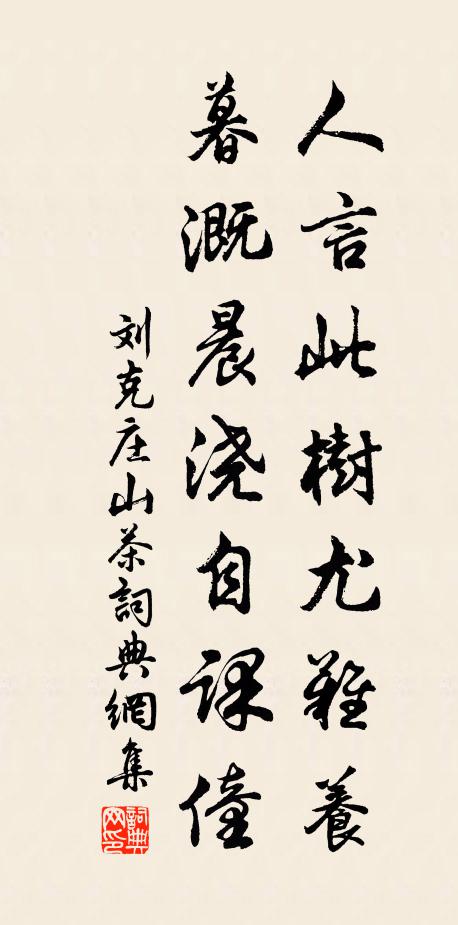 人言此樹尤難養
暮溉晨浇自课僮
刘克庄山茶詞典網集
詞典網印